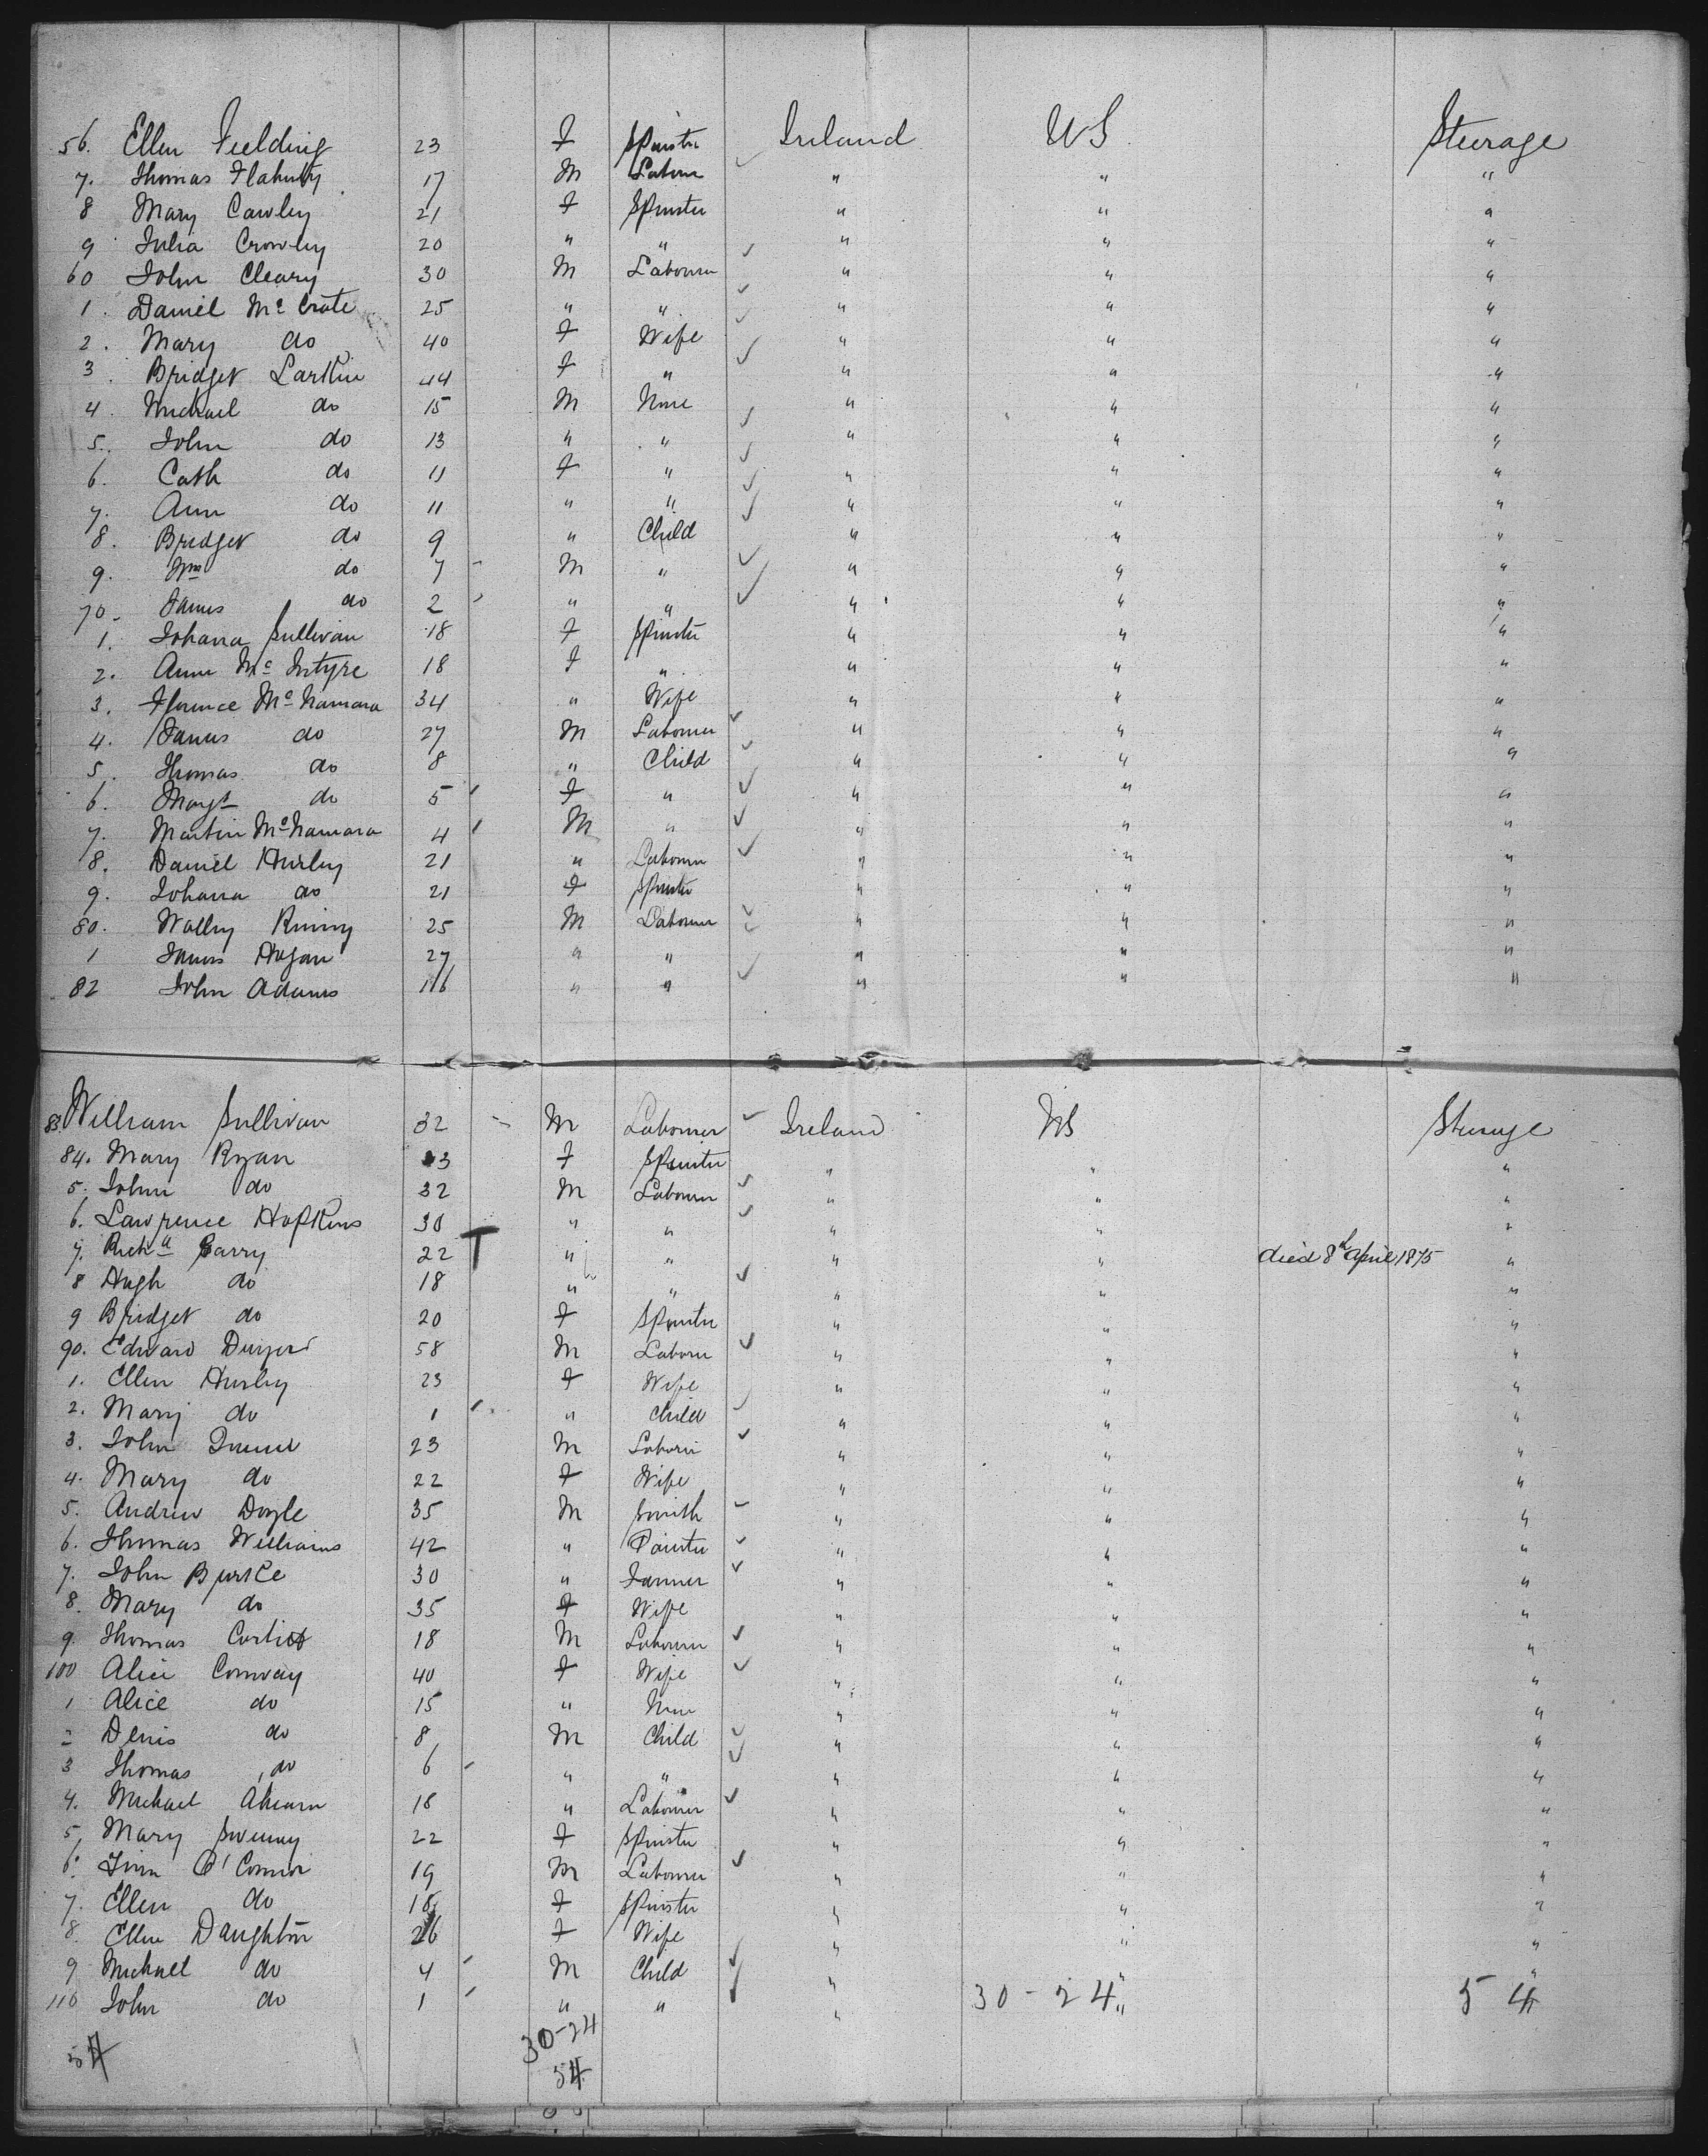 56. Ellen Fielding 23 F Spinster Ireland US Steerage
7. Thomas Flaherty 17 M Labour " " "
8 Mary Cawley 21 F Spinster " " "
9 Julia Crowley 20 " " " " "
60 John Cleary 30 M Labourer " " "
1. Daniel Mc Crate 25 " " " " "
2. Mary do 40 F Wife " " "
3. Bridget Larkin 44 F " " " "
4. Michael do 15 M None " " "
5. John do 13 " " " " "
6. Cath do 11 F " " " "
7. Ann do 11 " " " " "
8. Bridget do 9 " Child " " "
9. Wm do 7 - M " " " "
70. James do 2 " " " " "
1. Johana Sullivan 18 F Spinster " " "
2. Ann Mc Intyre 18 F " " " "
3. Florence Mc Namara 34 " Wife " " "
4. James do 27 M Labourer " " "
5. Thomas do 8 " Child " " "
6. Margt do 5 F " " " "
7. Martin McNamara 4 M " " " "
8. Daniel Hurley 21 " Labourer " " "
9. Johana do 21 F Spinster " " "
80. 25 M Labourer " " "
1 James Hogan 27 " " " " "
82 John Adams 16 " " " " "
83. William Sullivan 32 - M Labourer Ireland US Steerage
84. Mary Ryan 3 F Spinster " " "
5. John do 32 M Labourer " " "
6. Lawrence Hopkins 30 " " " " "
7. Richd Barry 22 T " " " " died 8th April 1875 "
8 Hugh do 18 " " " " "
9 Bridget do 20 F Spinster " " "
90. Edward Dwyer 58 M Labourer " " "
1. Ellen Hurley 23 F Wife " " "
2. Mary do 1 " Child " " "
3. John Quinn 23 M Laborer " " "
4. Mary do 22 F Wife " " "
5. Andrew Doyle 35 M Smith " " "
6. Thomas Williams 42 " Painter " " "
7. John Burke 30 " Farmer " " "
8. Mary do 35 F Wife " " "
9. Thomas 18 M Labourer " " "
100 Alice Conway 40 F Wife " " "
1 Alice do 15 " None " " "
2 Denis do 8 M Child " " "
3 Thomas do 6 - " " " " "
4. Michael Ahearn 18 " Labourer " " "
5. Mary Sweeny 22 F Spinster " " "
6. O'Connor 19 M Labourer " " "
7. Ellen do 18 F Spinster " " "
8. Ellen Daughton 26 F Wife " " "
9 Michael do 4 M Child " " "
110 John do 1 " " " " "
30-24 54
54 30-24
54